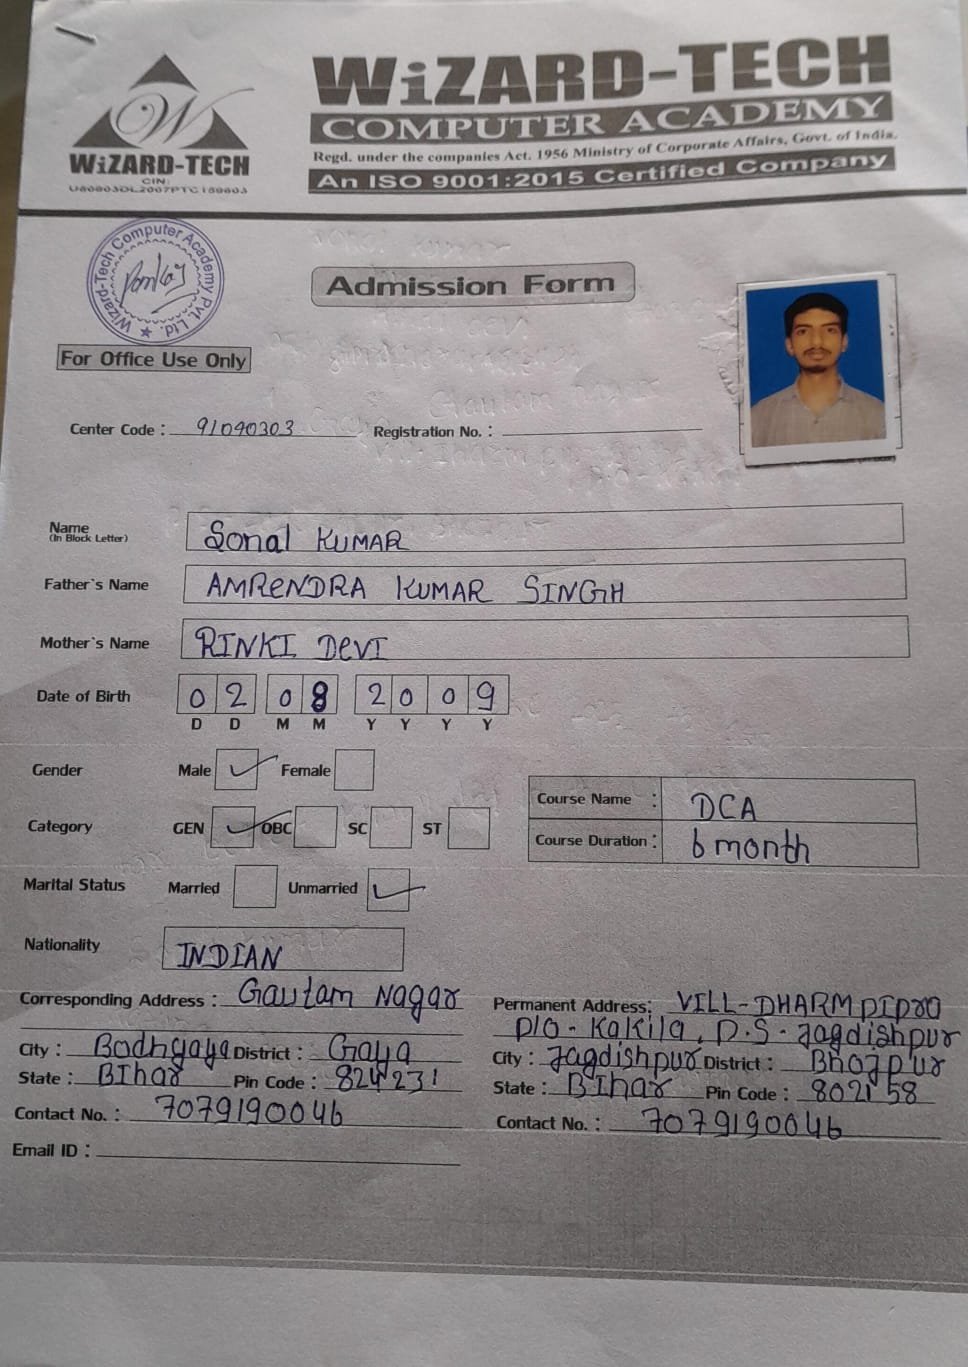 WiZARD-TECH
COMPUTER ACADEMY
Regd. under the companies Act. 1956 Ministry of Corporate Affairs, Govt. of India.
An ISO 9001:2015 Certified Company
WiZARD-TECH
CIN:
U80903DL2007PTC159603
Wizard-Tech Computer Academy Pvt. Ltd.
Admission Form
For Office Use Only
Center Code : 91090303 Registration No. :
Name Sonal KUMAR
(In Block Letter)
Father`s Name AMRENDRA KUMAR SINGH
Mother`s Name RINKI DEVI
Date of Birth 02 08 2009
D D M M Y Y Y Y
Gender Male Female
Category GEN OBC SC ST
Course Name : DCA
Course Duration : 6 month
Marital Status Married Unmarried
Nationality INDIAN
Corresponding Address : Gautam Nagar
Permanent Address: VILL-DHARM
P/O - Kakila, P.S - Jagdishpur
City : Bodhgaya District : Gaya
City : Jagdishpur District : Bhojpur
State : BIhar Pin Code : 824231
State : BIhar Pin Code : 802158
Contact No. : 7079190046
Contact No. : 7079190046
Email ID :